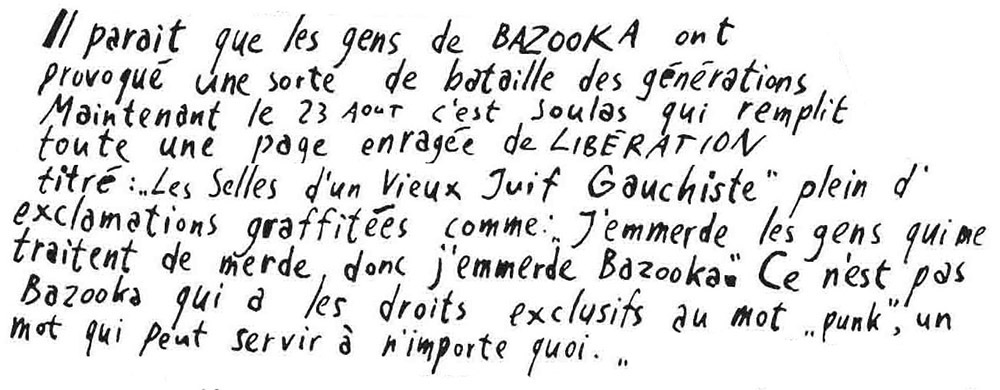 Il parait que les gens de BAZOOKA ont
provoqué une sorte de bataille des générations
Maintenant le 23 AOUT c'est Soulas qui remplit
toute une page enragée de LIBÉRATION
titré: „Les Selles d'un Vieux Juif Gauchiste" plein d'
exclamations graffitées comme: „J'emmerde les gens qui me
traitent de merde, donc j'emmerde Bazooka." Ce n'est pas
Bazooka qui a les droits exclusifs au mot „punk", un
mot qui peut servir à n'importe quoi. „